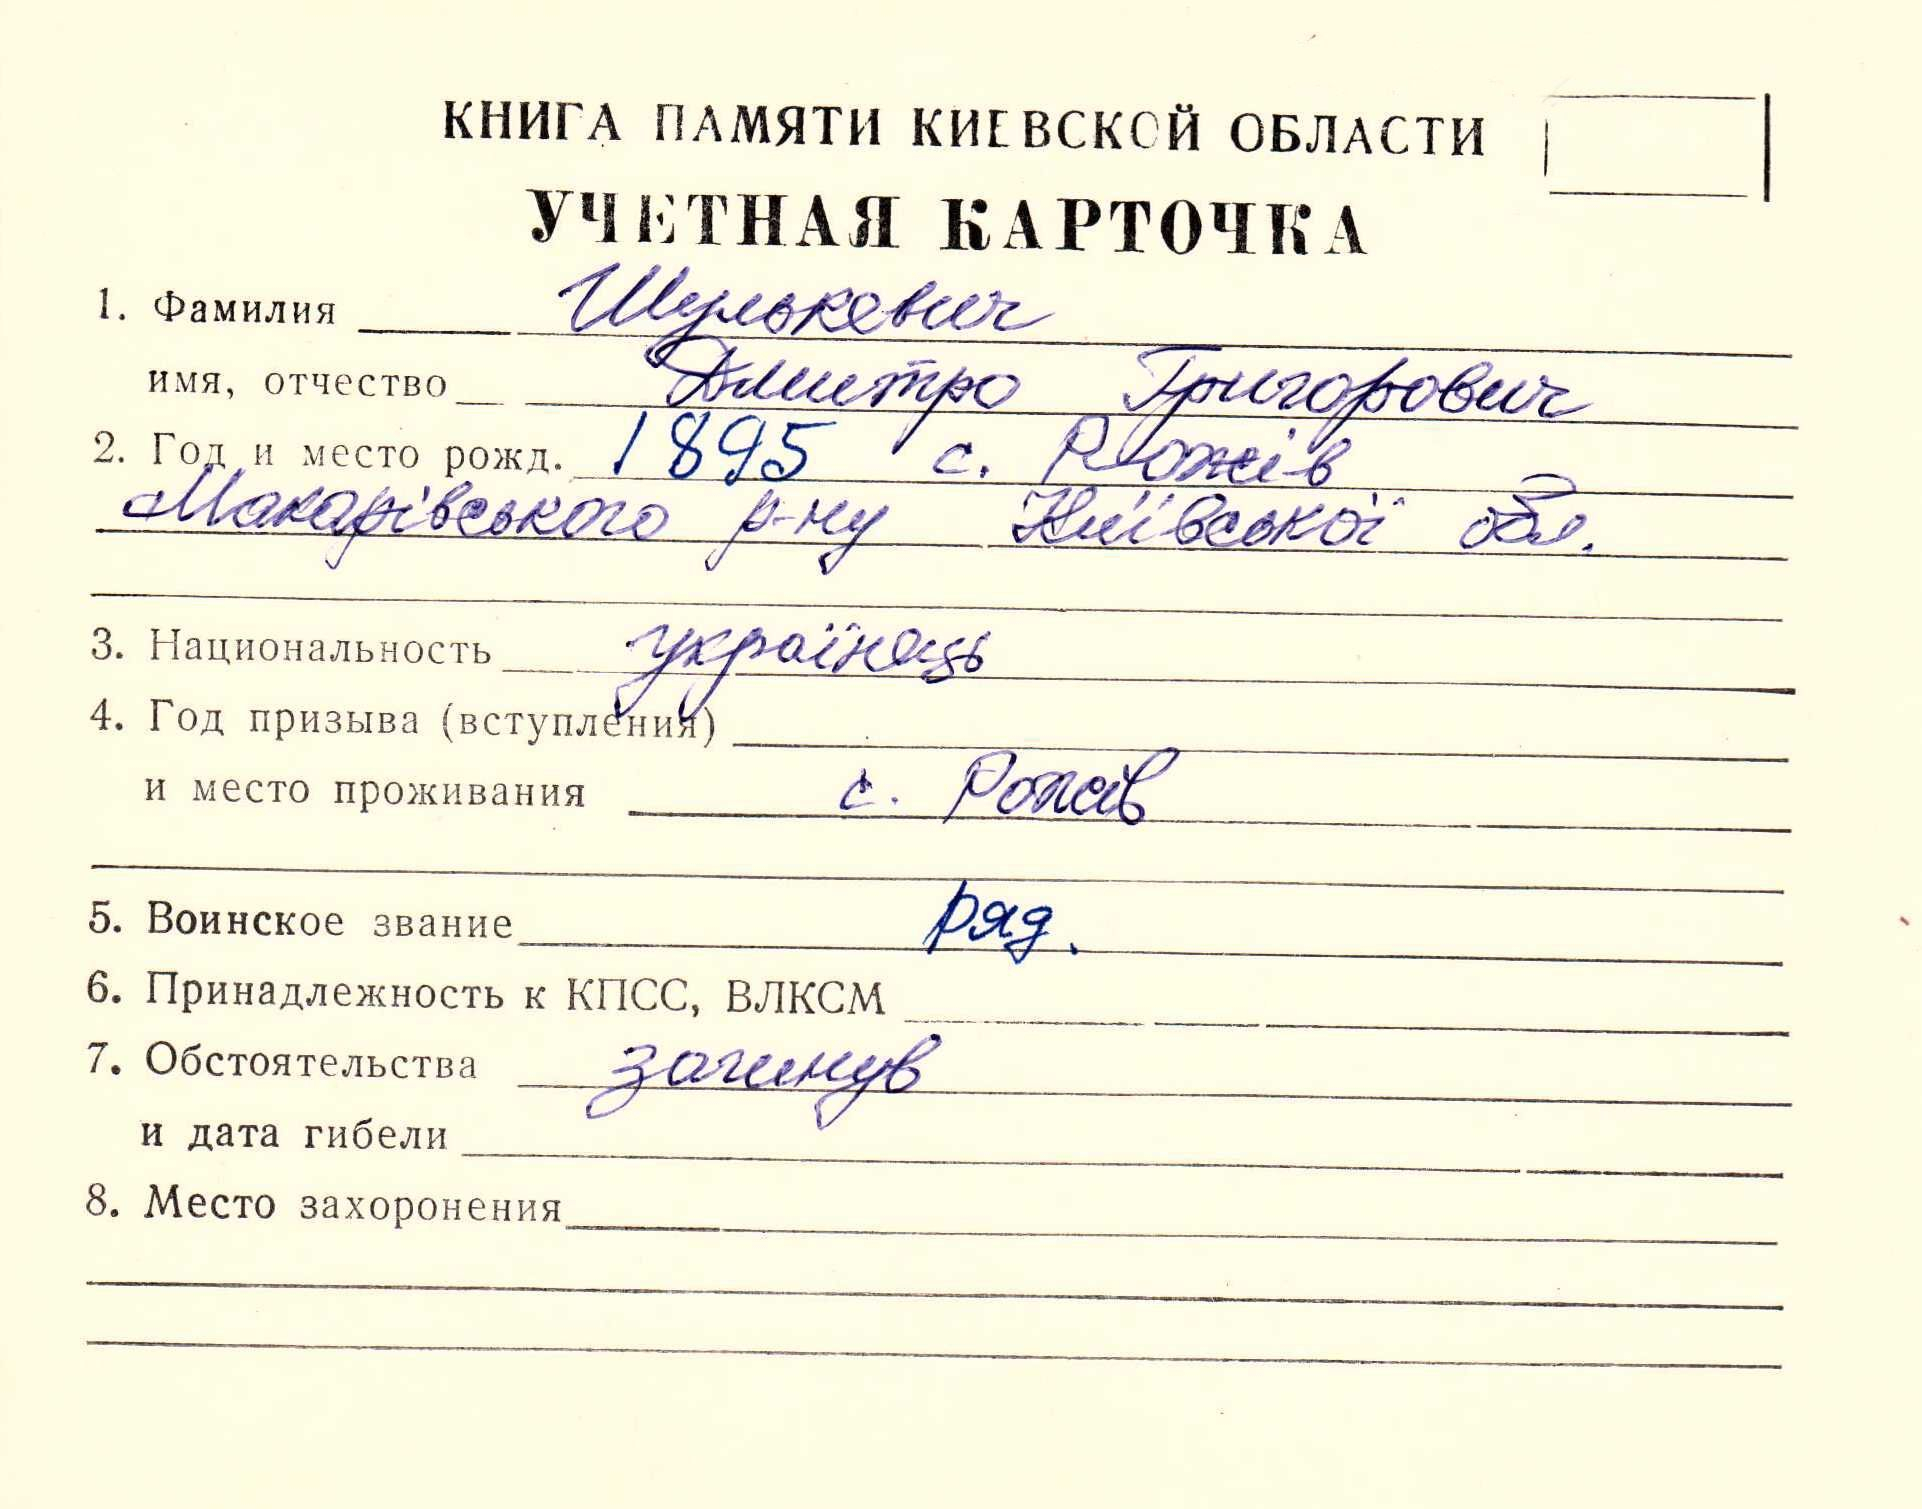 КНИГА ПАМЯТИ КИЕВСКОЙ ОБЛАСТИ
УЧЕТНАЯ КАРТОЧКА
1. Фамилия Шулькевич
имя, отчество Дмитро Григорович
2. Год и место рожд. 1895 с. Рожів
Макарівського р-ну Київської обл.
3. Национальность українець
4. Год призыва (вступления)
и место проживания с. Рожів
5. Воинское звание ряд.
6. Принадлежность к КПСС, ВЛКСМ
7. Обстоятельства загинув
и дата гибели
8. Место захоронения